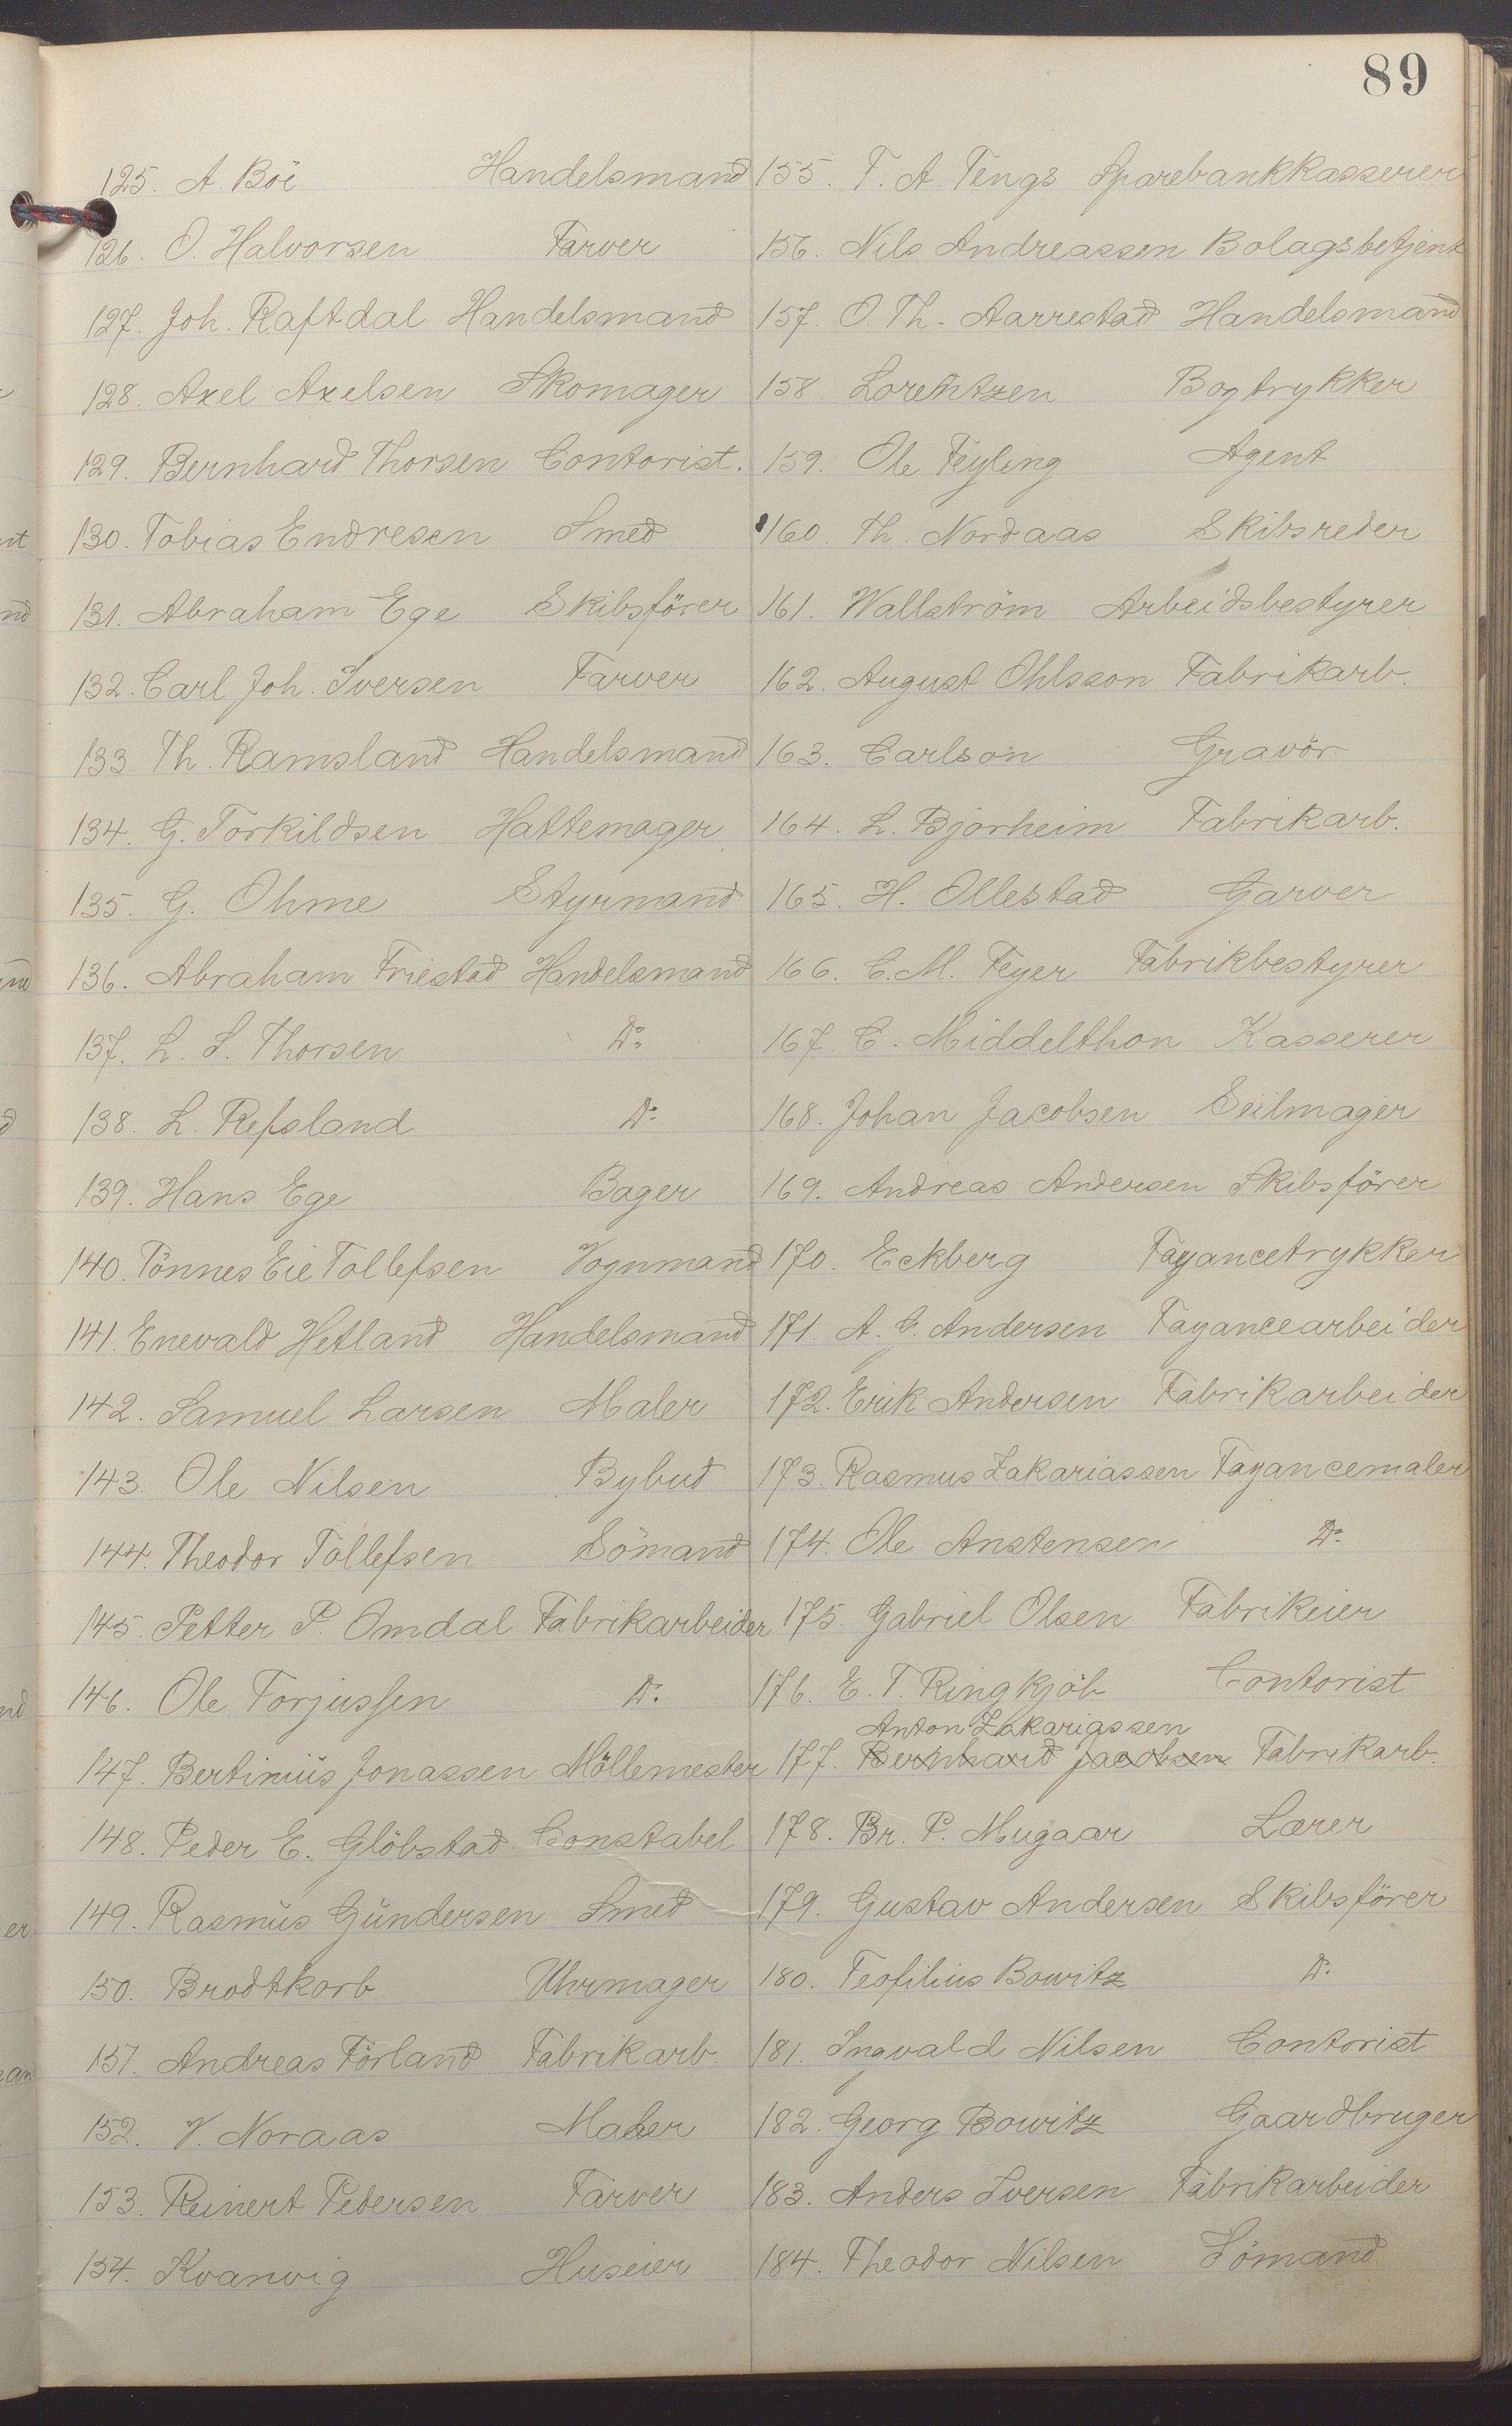 89
125. A. Böe Handelsmand
126. O. Halvorsen Farver
127. Joh. Raftdal Handelsmand
128. Axel Axelsen Skomager
129. Bernhard Thorsen Contorist.
130. Tobias Endresen Smed
131. Abraham Ege Skibsförer
132. Carl Joh. Iversen Farver
133. Th. Ramsland Handelsmand
134. G. Torkildsen Hattemager
135. G. Ohme Styrmand
136. Abraham Friestad Handelsmand
137. L. S. Thorsen Do
138. L. Refsland Do
139. Hans Ege Bager
140. Tönnes Eie Tollefsen Vognmand
141. Enevald Hetland Handelsmand
142. Samuel Larsen Maler
143. Ole Nilsen Bybud
144. Theodor Tollefsen Sömand
145. Petter P. Omdal Fabrikarbeider
146. Ole Torjussen Do
147. Bertinius Jonassen Möllemester
148. Peder E. Glöbstad Constabel
149. Rasmus Gundersen Smed
150. Brodtkorb Uhrmager
151. Andreas Förland Fabrikarb.
152. V. Noraas Maler
153. Reinert Pedersen Farver
154. Kvanvig Huseier
155. T. A. Tengs Sparebankkasserer
156. Nils Andreassen Bolagsbetjent
157. O. Th. Aarrestad Handelsmand
158 Lorentzen Bogtrykker
159. Ole Feyling Agent
160. Th. Nordaas Skibsreder
161. Wallström Arbeidsbestyrer
162. August Ohlsson Fabrikarb.
163. Carlson Gravör
164. L. Bjorheim Fabrikarb.
165. H. Ollestad Garver
166. C. M. Feyer Fabrikbestyrer
167. C. Middelthon Kasserer
168. Johan Jacobsen Seilmager
169. Andreas Andersen Skibsförer
170. Eckberg Fayancetrykker
171. A. G. Andersen Fayancearbeider
172. Erik Andersen Fabrikarbeider
173. Rasmus Zakariassen Fayancemaler
174. Ole Anstensen Do
175. Gabriel Olsen Fabrikeier
176. E. T. Ringkjöb Contorist
Anton Zakariassen
177. Bernhard Jacobsen Fabrikarb.
178. Br. P. Mugaar Lærer
179. Gustav Andersen Skibsförer
180. Teofilius Bowitz Do
181. Ingvald Nilsen Contorist
182. Georg Bowitz Gaardbruger
183. Anders Iversen Fabrikarbeider
184. Theodor Nilsen Sömand